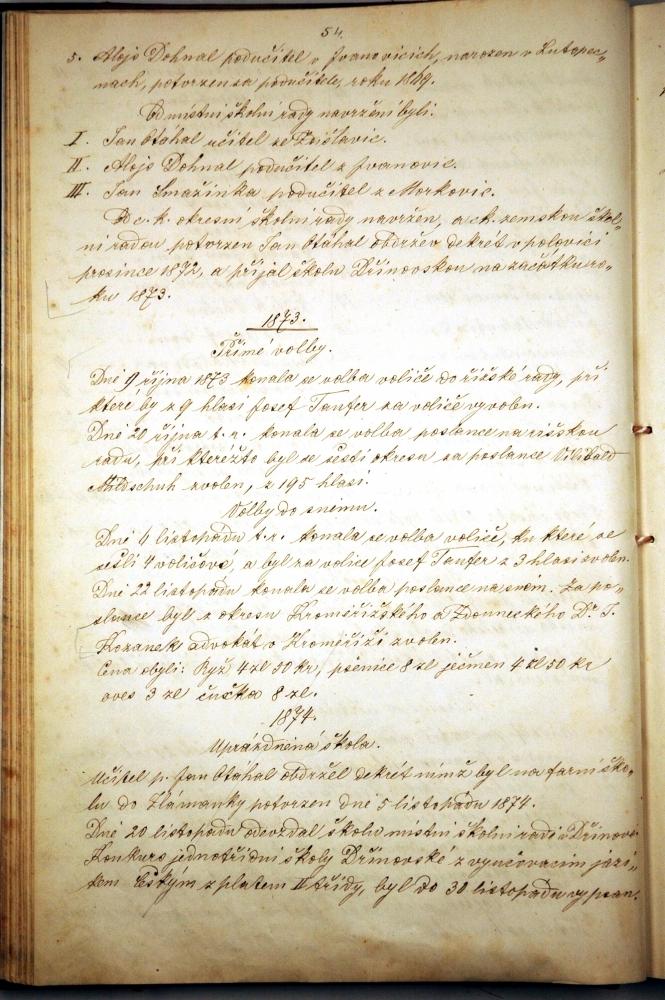 54.
5. Alojs Dohnal podučitel v Ivanovicích, narozen v Lutopec„
nach, potvrzen za podučitele, roku 1869.
Od místní školní rady navrženi byli:
I. Jan Otáhal učitel ze Zdislavic.
II. Alojs Dohnal podučitel z Ivanovic.
III. Jan Smažinka podučitel z Morkovic.
Od c. k. okresní školní rady navržen, a ck. zemskou škol„
ní radou potvrzen Jan Otáhal obdržev dekrét v polovici
prosince 1872, a přijal školu Dřínovskou na začátku ro„
ku 1873.
1873.
Přímé volby.
Dné 9 října 1873 konala se volba voličů do říšské rady, při
které by z 9 hlasi Josef Taufer za voliče vyvolen.
Dné 20 října t. r. konala se volba poslance na říšskou
radu, při kterežto byl ze šesti okresu za poslance Vilibald
Mildschuh zvolen, z 195 hlasi.
Volby do snému.
Dné 4 listopadu t. r. konala se volba voličů, ku které se
sešli 4 voličové, a byl za voliče Josef Taufer z 3 hlasi zvolen.
Dné 22 listopadu konala se volba poslance na sném. Za po„
slance byl z okresu Kroměřížského a Zdouneckého Dr. J.
Kozanek advokát v Kroměříži zvolen.
Cena obylí: Ryž 4 zl 50 kr, pšenice 8 zl ječmen 4 zl 50 kr
oves 3 zl čučka 8 zl.
1874.
Uprázdnéna škola.
Učitel p. Jan Otáhal obdržel dekrét nímž byl na farní ško„
lu do Zlámanky potvrzen dné 5 listopadu 1874.
Dné 20 listopadu odevzdal školu místní školní radě v Dřínově.
Konkurs jednotřídní školy Dřínovské z vyučovacím jazi„
kem českým z platem II třídy, byl do 30 listopadu vypsan.